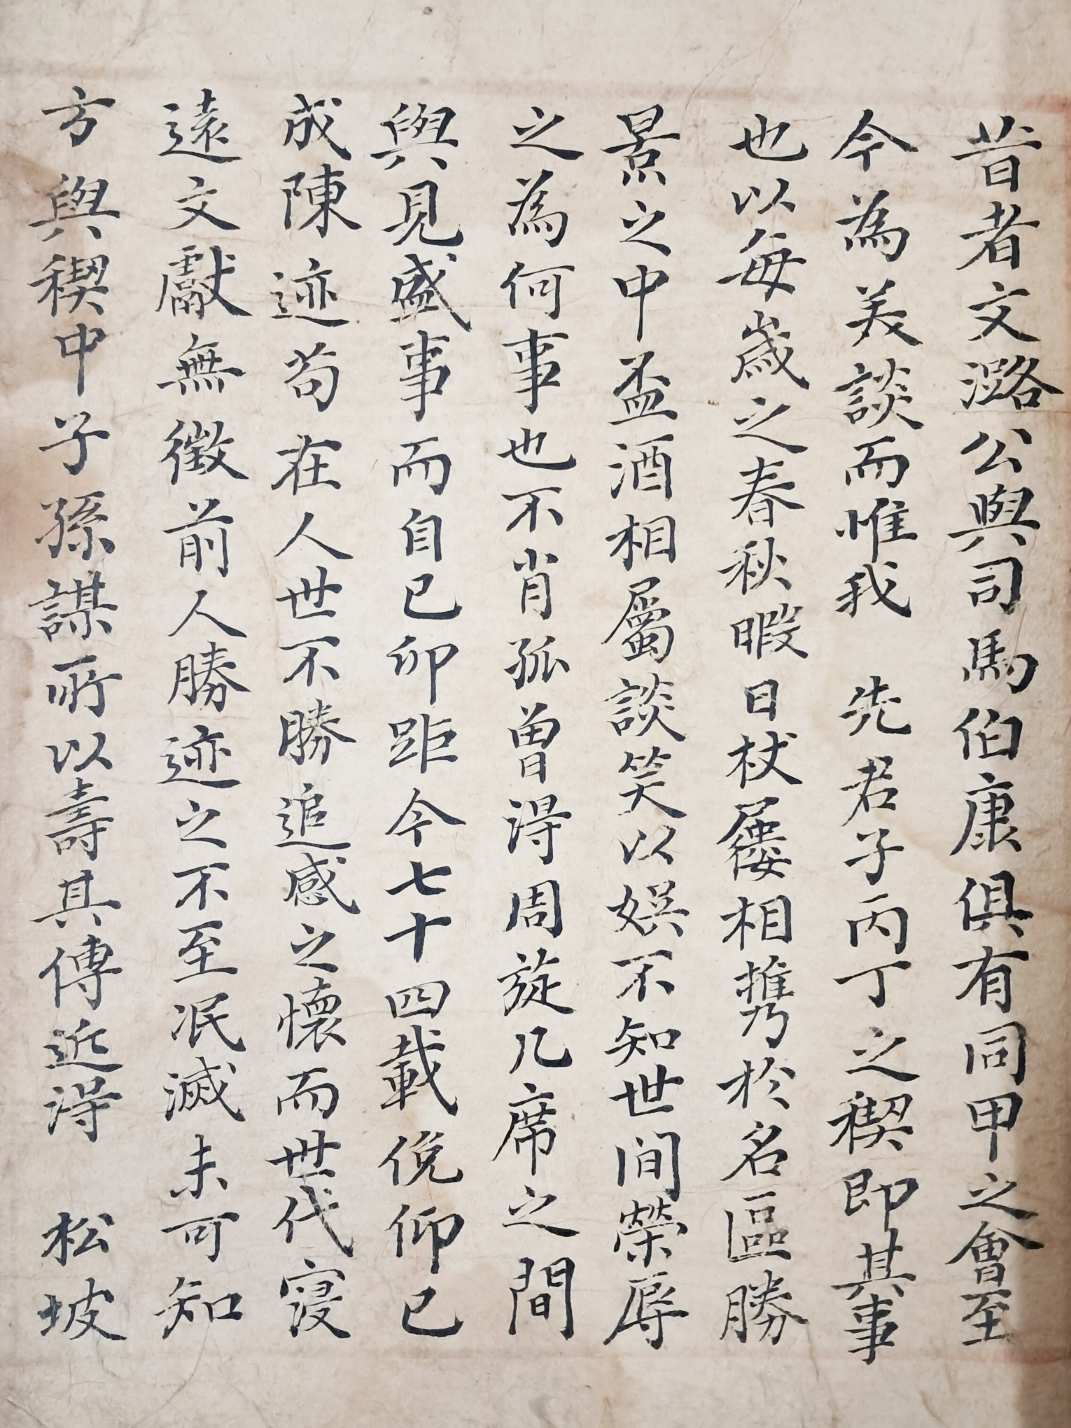 昔者文潞公與司馬伯康俱有同甲之會至
今為美談而惟我 先君子丙丁之稧即其事
也以每歲之春秋暇日杖屨相携於名區勝
景之中盃酒相屬談笑以娛不知世间榮辱
之為何事也不肖孤曽淂周旋几席之間
與見盛事而自己卯距今七十四載俛仰已
成陳迹苟在人世不勝追感之懷而世代寝
遠文獻無徵前人勝迹之不至泯滅未可知
方與稧中子孫謀所以壽其傳近淂 松坡